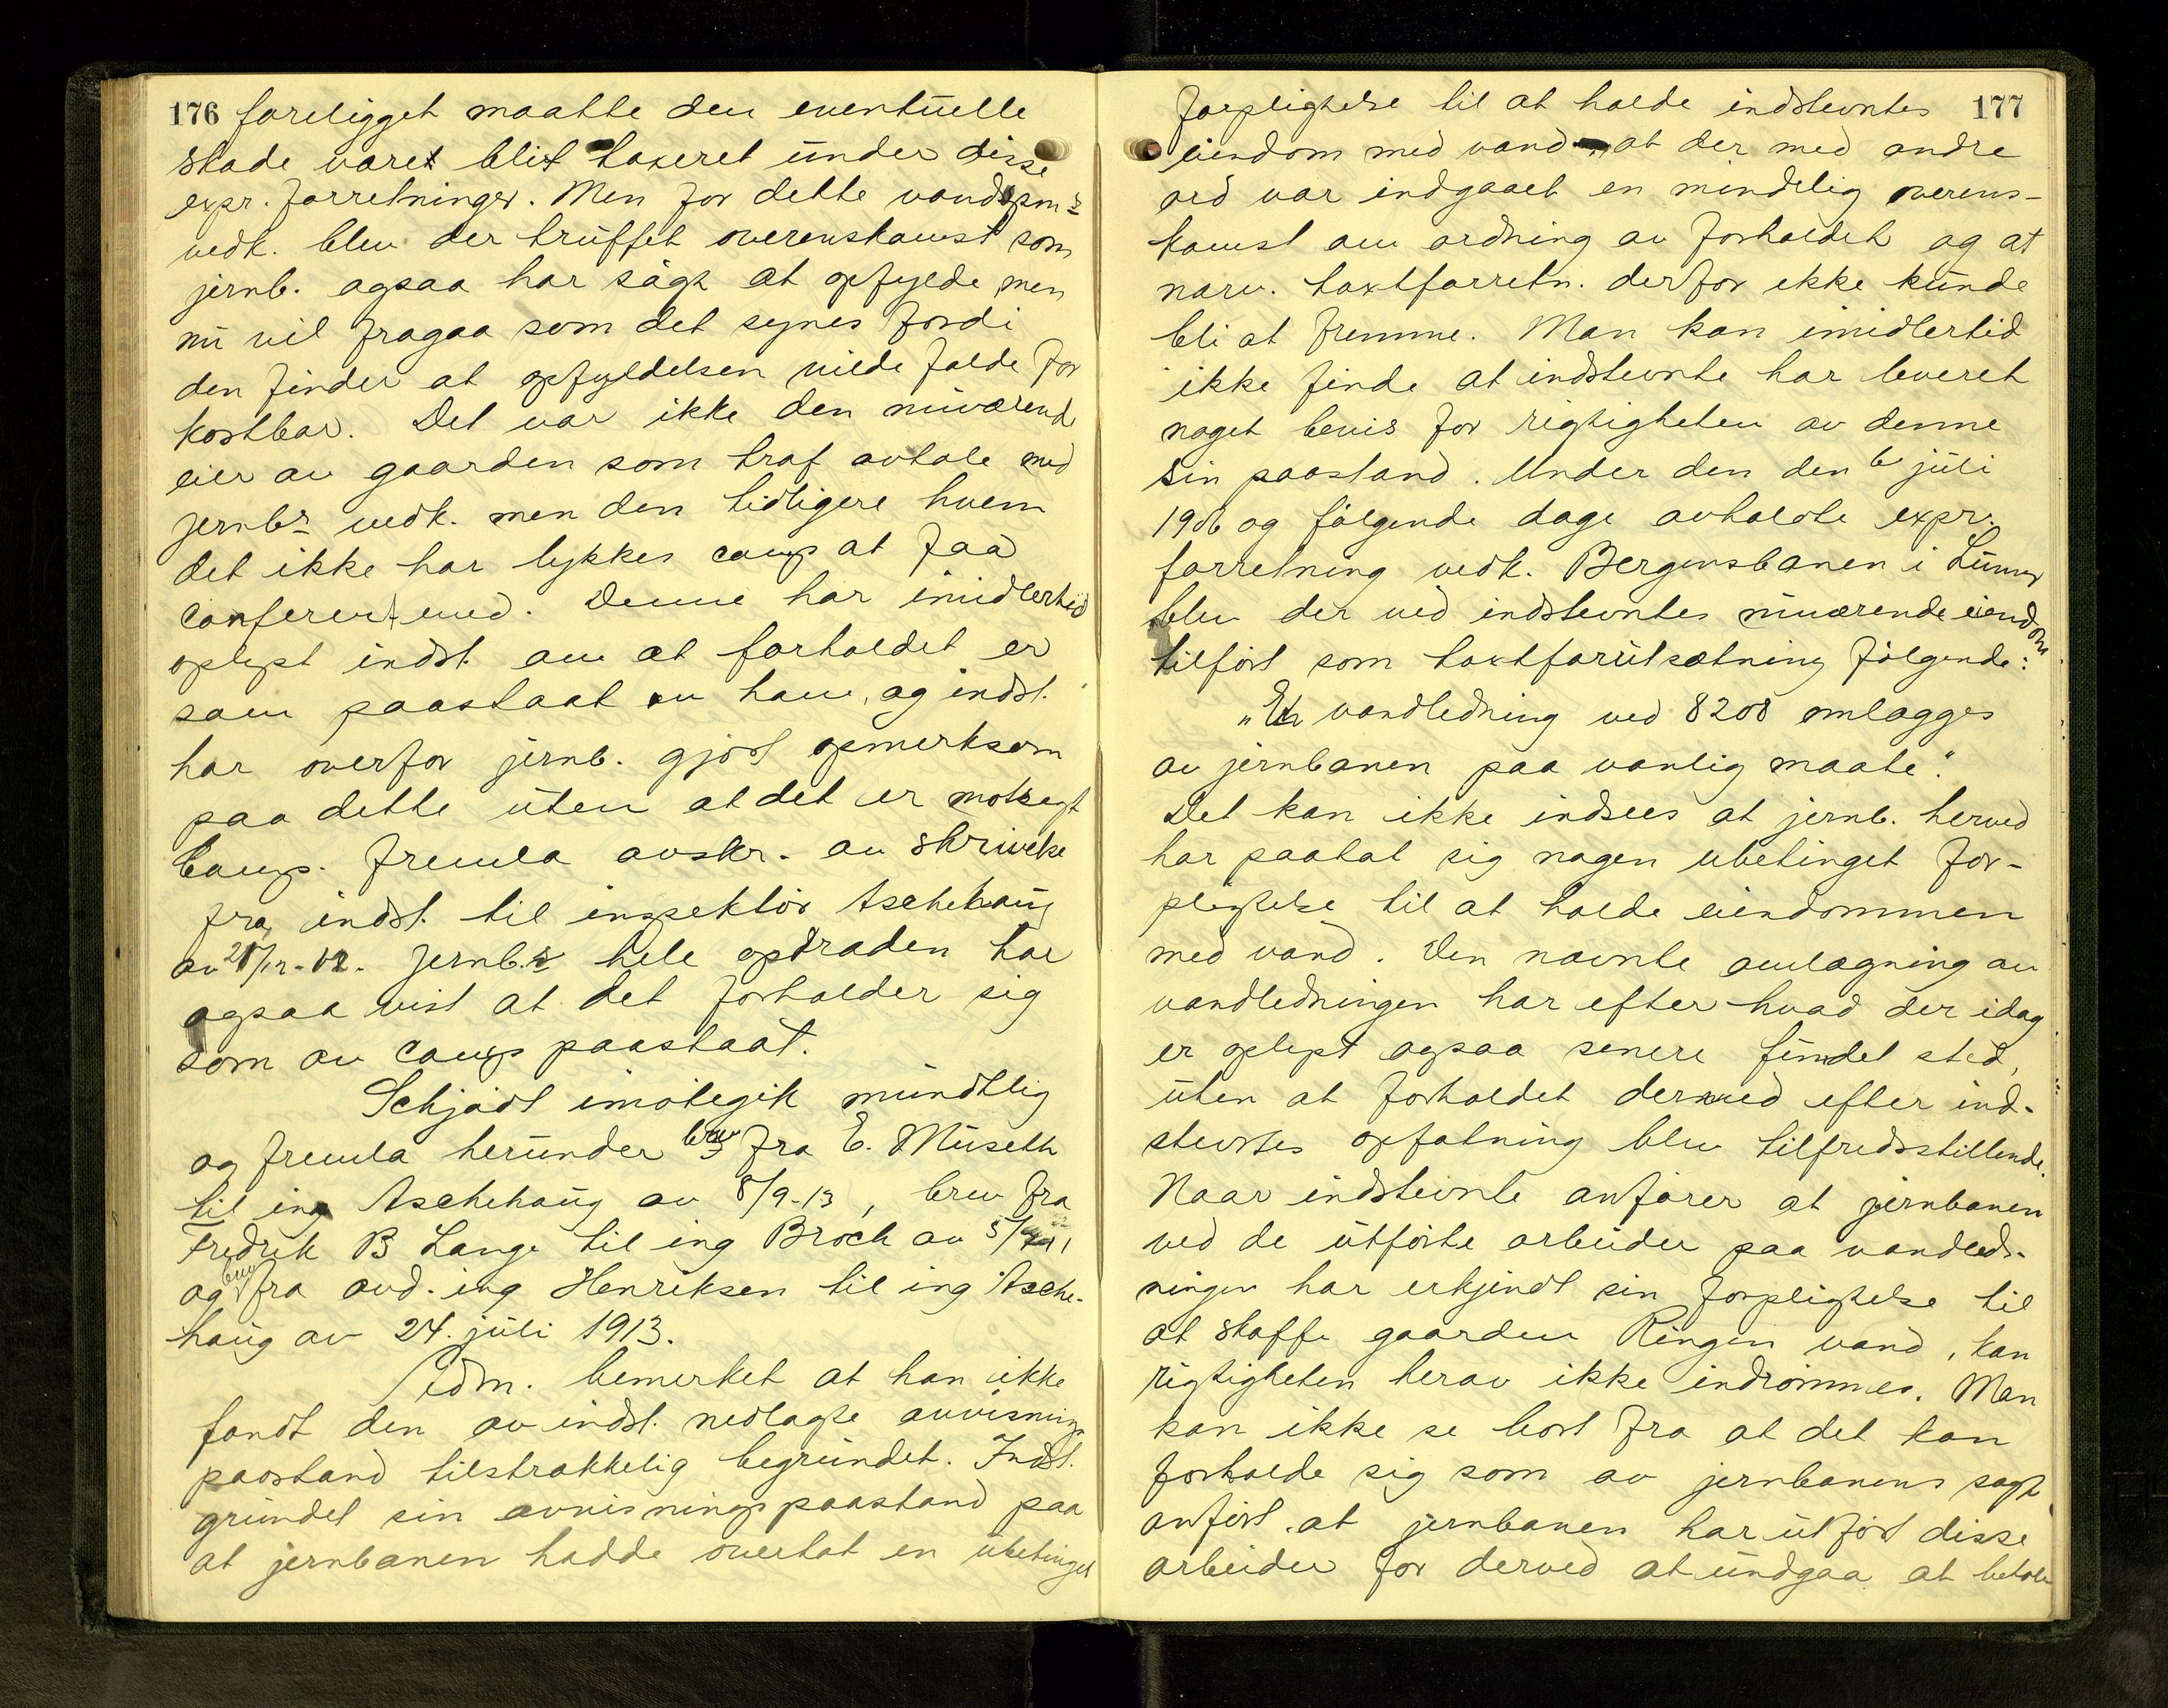 176 foreligget maatte den eventuelle
skade været blit taxeret under disse
expr. forretninger. Men for dette vandspm:s
vedk. blev der truffet overenskomst som
jernb. ogsaa har søgt at opfylde men
nu vil fragaa som det synes fordi
den finder at opfyldelsen vilde falde for
kostbar. Det var ikke den nuværende
eier av gaarden som traf avtale med
jernb:s vedk. men den tidligere hvem
det ikke har lykkes comp at faa
conferert med. Denne har imidlertid
oplyst indst. om at forholdet er
som paastaat av ham, og indst.
har overfor jernb. gjort opmerksom
paa dette uten at det er motsagt
Comp. freml a avskr. av skrivelse
fra indst. til inspektør Aschehoug
av jernb.s hele optræden har
ogsaa vist at det forholder sig
som av comp paastaat.
Schjødt imøtegik mundtlig
og freml a herunder brev fra E. Museth
til ing Aschehoug av 8/9-13, brev fra
Fredrik B Lange til ing Broch av
og brev fra avd. ing Henriksen til ing Asche-
houg av 24. juli 1913.
Adm. bemerket at han ikke
fandt den av indst. nedlagte avvisnings
paastand tilstrækkelig begrundet. Indst.
grundet sin avvisningspaastand paa
at jernbanen hadde overtat en ubetinget
forpligtelse til at holde indstevntes 177
eiendom med vand, at der med andre
ord var indgaaet en mindelig overens-
komst om ordning av forholdet og at
nærv. taxtforretn. derfor ikke kunde
bli at fremme. Man kan imidlertid
ikke finde at indstevnte har leveret
noget bevis for rigtigheten av denne
sin paastand. Under den den 6 juli
1906 og følgende dage avholdte expr.
forretning vedk. Bergensbanen i Lunner
blev der ved indstevntes nuværende eiendom
tilført som taxtforutsætning følgende:
„En vandledning ved 8208 omlægges
av jernbanen paa vanlig maate".
Det kan ikke indsees at jernb. herved
har paatat sig nogen ubetinget for-
pligtelse til at holde eiendommen
med vand. Den nævnte omlægning av
vandledningen har efter hvad der idag
er oplyst ogsaa senere fundet sted,
uten at forholdet dermed efter ind-
stevntes opfatning blev tilfredsstillende.
Naar indstevnte anfører at jernbanen
ved de utførte arbeider paa vandled-
ningen har erkjendt sin forpligtelse til
at skaffe gaarden Ringen vand, kan
rigtigheten herav ikke indrømmes. Man
kan ikke se bort fra at det kan
forholde sig som av jernbanens sagf.
anført at jernbanen har utført disse
arbeider for derved at undgaa at betale